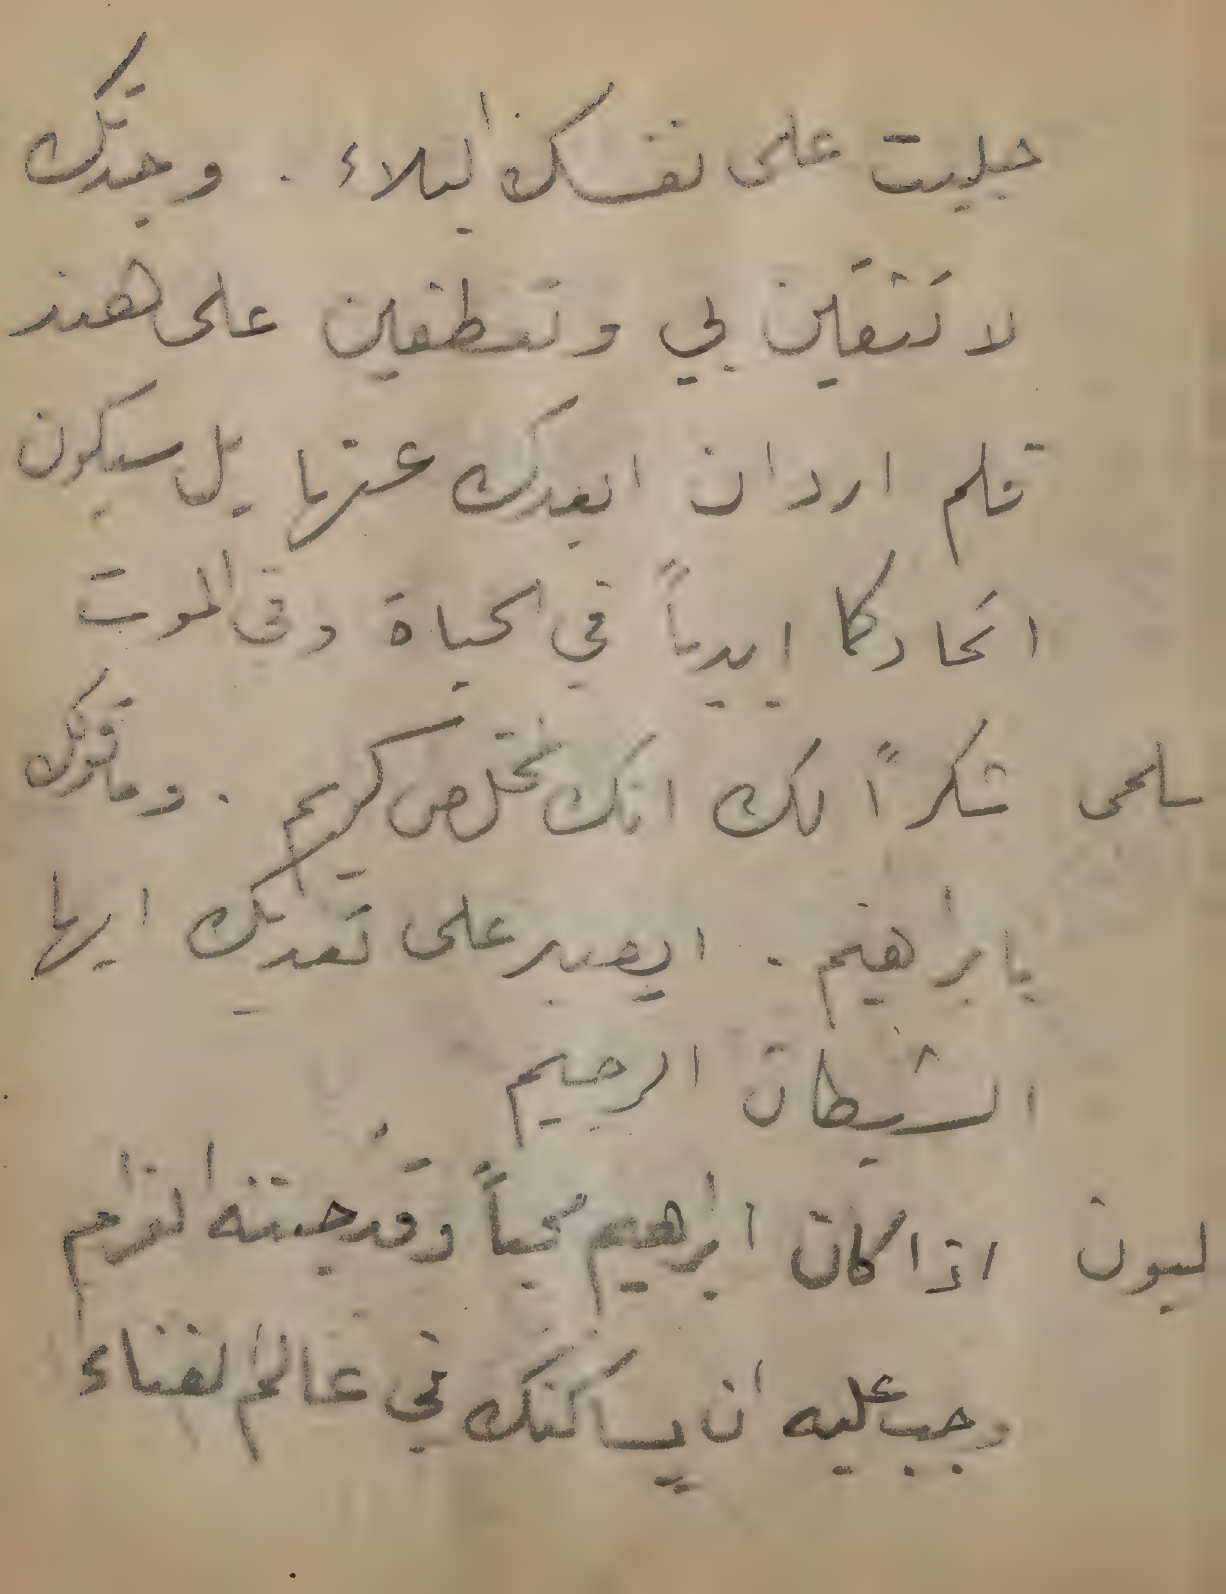 جلبت على نفسك البلاء . وجدتك
لا تثقين بي وتعطفين على هند
فلم ارد ان ابعدك عنها بل سيكون
اتحادكما ابدياً في الحياة وفي الموت
سلمى شكراً لك انك مخلص كريم .
يا براهيم . ايصبر على تعديك ايها
الشيطان الرجيم
ليون اذا كان ابراهيم محباً وقد جننه الغرام
وجب عليه ان يساكنك في عالم الفناء